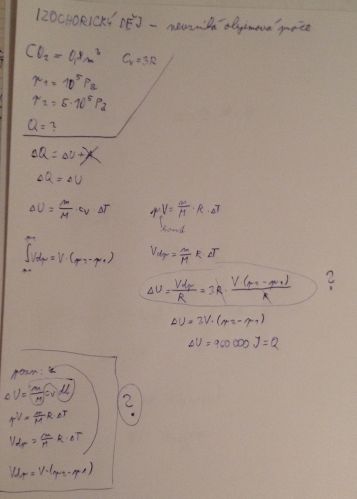 IZOCHORICKÝ DĚJ - nevzniká objemová práce
CO₂ = 0,8 m³ Cv = 3R
p₁ = 10⁵ Pa
p₂ = 5·10⁵ Pa
Q = ?
ΔQ = ΔU + A
ΔQ = ΔU
ΔU = m/M · cv · ΔT pV = m/M · R · ΔT
konst
∫Vdp = V·(p₂-p₁) Vdp = m/M R·ΔT
ΔU = Vdp/R = 3R · V·(p₂-p₁)/R ?
ΔU = 3V·(p₂-p₁)
ΔU = 960 000 J = Q
pozn.:
ΔU = m/M cv dt ?
pV = m/M R·ΔT
Vdp = m/M R·ΔT
Vdp = V·(p₂-p₁)